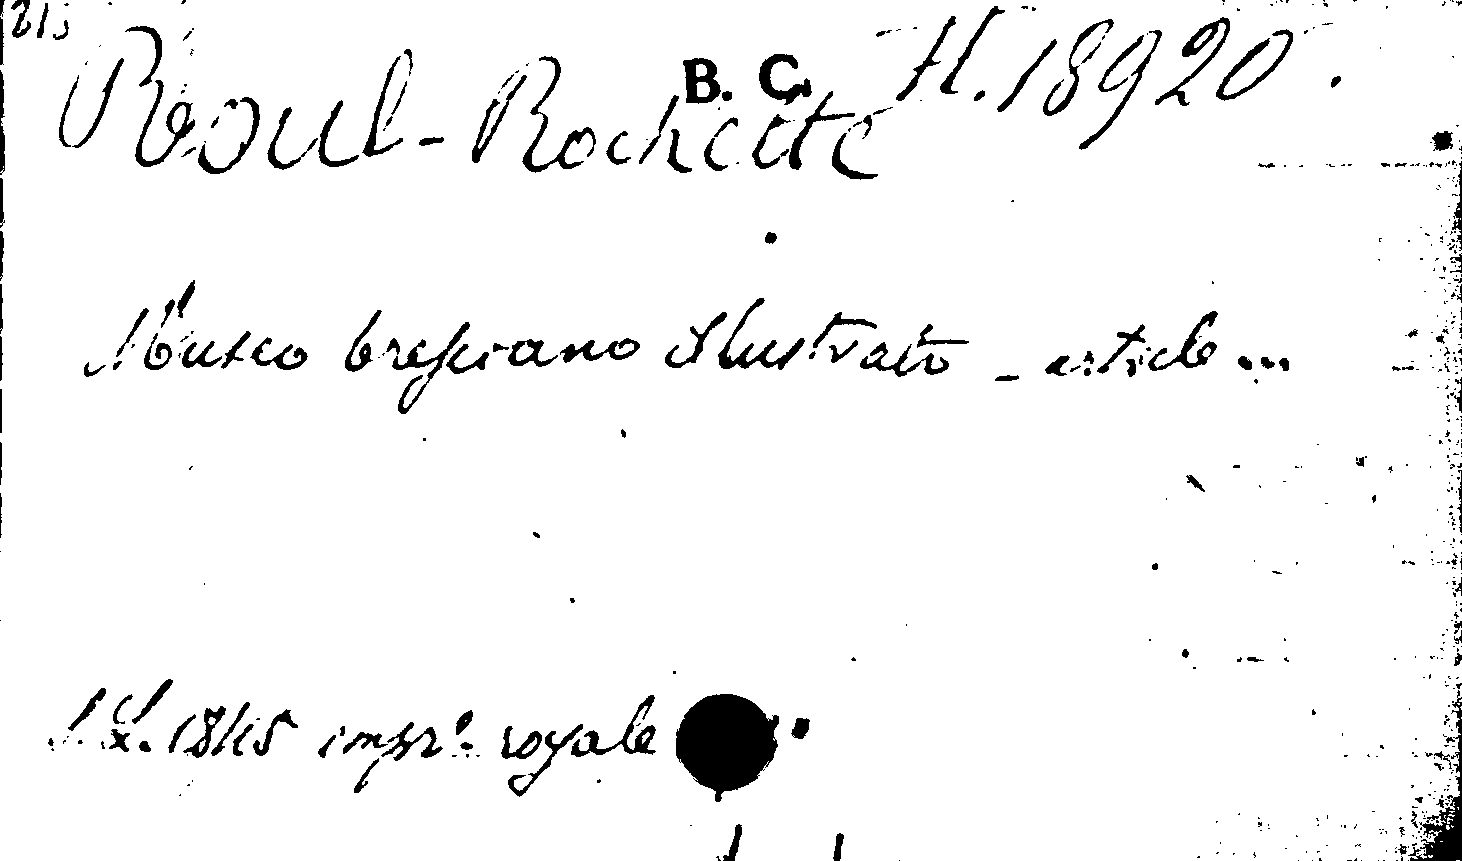 B. C. H. 18920.
Raoul-Rochette
Museo bresciano illustrato - article...
S.L. 1845 impr. royale